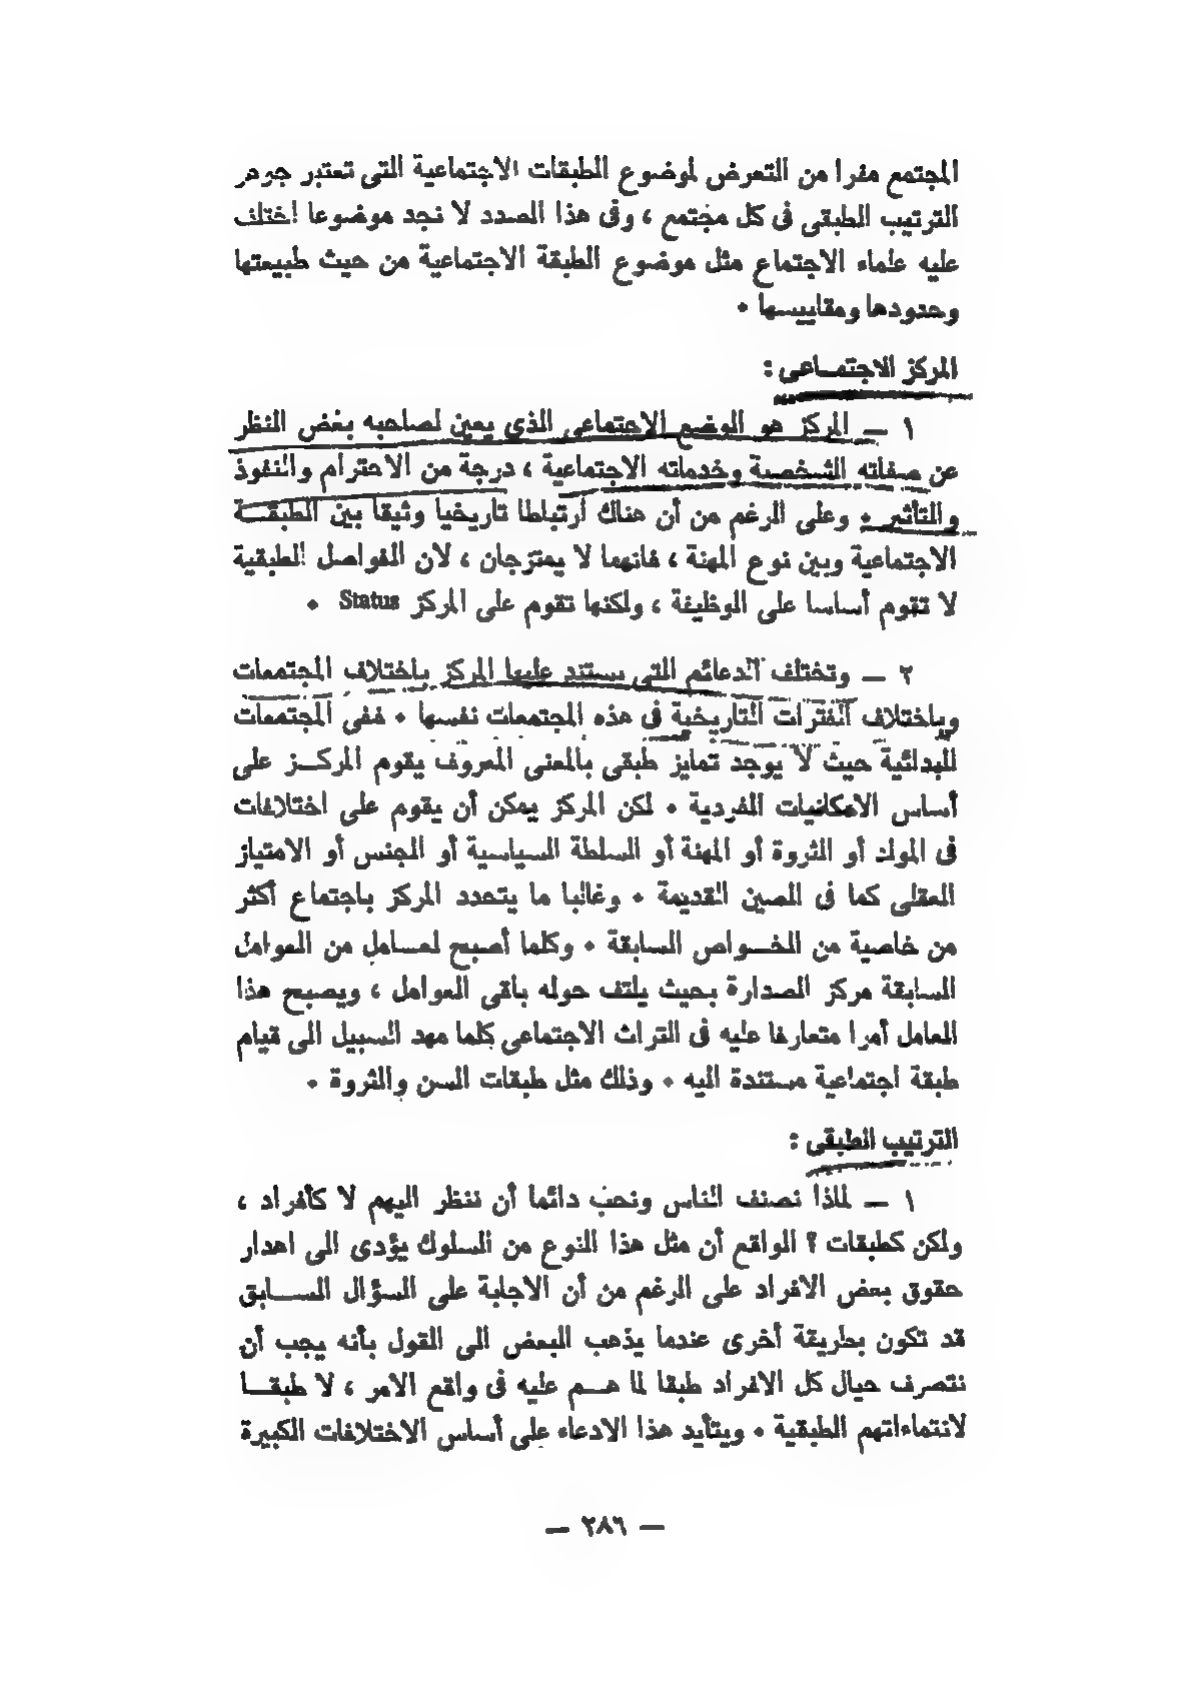 المجتمع مفرا من التعرض لموضوع الطبقات الاجتماعية التى تعتبر جوهر
الترتيب الطبقى فى كل مجتمع ، وفى هذا الصدد لا نجد موضوعا اختلف
عليه علماء الاجتماع مثل موضوع الطبقة الاجتماعية من حيث طبيعتها
وحدودها ومقاييسها ٠
المركز الاجتمــاعى :
١ — المركز هو الوضع الاجتماعى الذي يعين لصاحبه بغض النظر
عن صفاته الشخصية وخدماته الاجتماعية ، درجة من الاحترام والنفوذ
والتأثير ٠ وعلى الرغم من أن هناك ارتباطا تاريخيا وثيقا بين الطبقــة
الاجتماعية وبين نوع المهنة ، فانهما لا يمتزجان ، لان الفواصل الطبقية
لا تقوم أساسا على الوظيفة ، ولكنها تقوم على المركز Status ٠
٢ — وتختلف الدعائم التى يستند عليها المركز باختلاف المجتمعات
وباختلاف الفترات التاريخية فى هذه المجتمعات نفسها ٠ ففى المجتمعات
البدائية حيث لا يوجد تمايز طبقى بالمعنى المعروف يقوم المركــز على
أساس الامكانيات الفردية ٠ لكن المركز يمكن أن يقوم على اختلافات
فى المولد أو الثروة أو المهنة أو السلطة السياسية أو الجنس أو الامتياز
العقلى كما فى الصين القديمة ٠ وغالبا ما يتحدد المركز باجتماع أكثر
من خاصية من الخــواص السابقة ٠ وكلما أصبح لعــامل من العوامل
السابقة مركز الصدارة بحيث يلتف حوله باقى العوامل ، ويصبح هذا
العامل أمرا متعارفا عليه فى التراث الاجتماعى كلما مهد السبيل الى قيام
طبقة اجتماعية مستندة اليه ٠ وذلك مثل طبقات السن والثروة ٠
الترتيب الطبقى :
١ — لماذا نصنف الناس ونحب دائما أن ننظر اليهم لا كأفراد ،
ولكن كطبقات ؟ الواقع أن مثل هذا النوع من السلوك يؤدى الى اهدار
حقوق بعض الافراد على الرغم من أن الاجابة على السؤال الســـابق
قد تكون بطريقة أخرى عندما يذهب البعض الى القول بأنه يجب أن
نتصرف حيال كل الافراد طبقا لما هــم عليه فى واقع الامر ، لا طبقــا
لانتماءاتهم الطبقية ٠ ويتأيد هذا الادعاء على أساس الاختلافات الكبيرة
— ٢٨٦ —